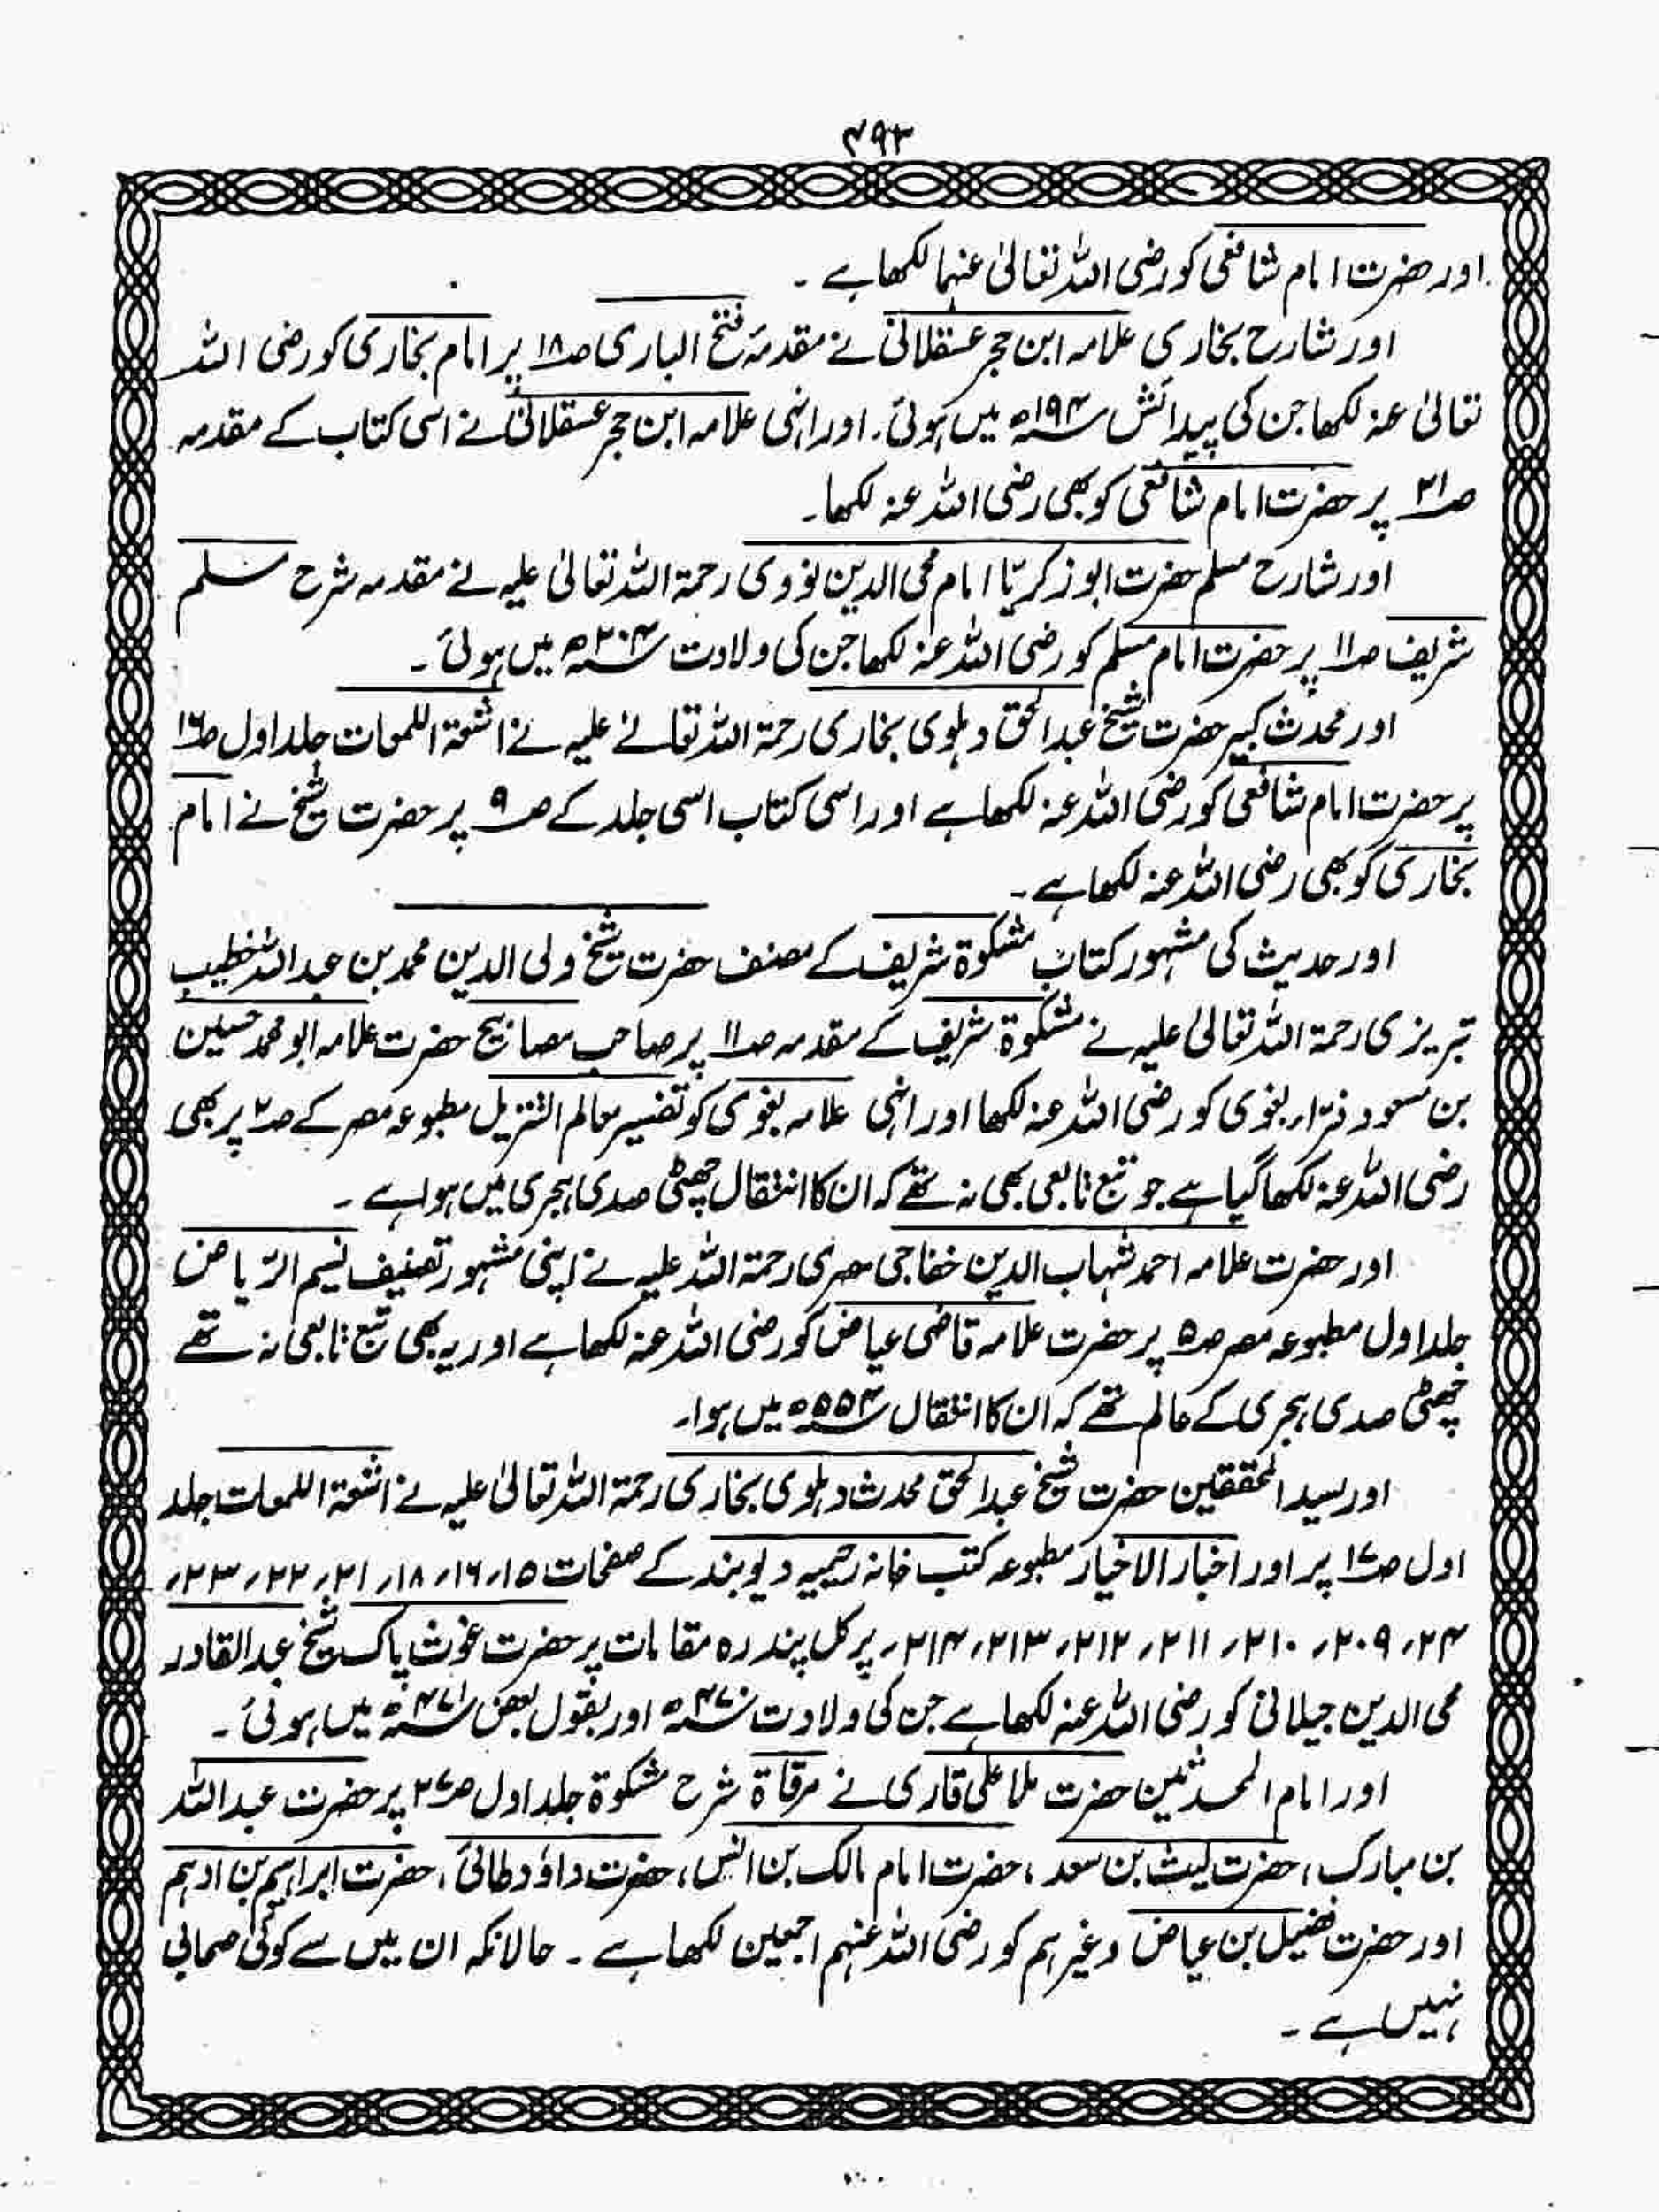 ۴۹۳
اور حضرت امام شافعی کو رضی اللہ تعالیٰ عنہما لکھا ہے ۔
اور شارح بخاری علامہ ابن حجر عسقلانی نے مقدمۂ فتح الباری صـ۱۸ پر امام بخاری کو رضی اللہ
تعالیٰ عنہ لکھا جن کی پیدائش ۱۹۴ھ میں ہوئی۔ اور انہی علامہ ابن حجر عسقلانی نے اسی کتاب کے مقدمہ
صـ۲۱ پر حضرت امام شافعی کو بھی رضی اللہ عنہ لکھا۔
اور شارح مسلم حضرت ابو زکریّا امام محی الدین نووی رحمۃ اللہ تعالیٰ علیہ نے مقدمہ شرح مسلم
شریف صـ۱۱ پر حضرت امام مسلم کو رضی اللہ عنہ لکھا جن کی ولادت ۲۰۴ھ میں ہوئی ۔
اور محدث کبیر حضرت شیخ عبدالحق دہلوی بخاری رحمۃ اللہ تعالےٰ علیہ نے اشعۃ اللمعات جلد اول صـ۱۶
پر حضرت امام شافعی کو رضی اللہ عنہ لکھا ہے اور اسی کتاب اسی جلد کے صـ۹ پر حضرت شیخ نے امام
بخاری کو بھی رضی اللہ عنہ لکھا ہے ۔
اور حدیث کی مشہور کتاب مشکوۃ شریف کے مصنف حضرت شیخ ولی الدین محمد بن عبد اللہ خطیب
تبریزی رحمۃ اللہ تعالیٰ علیہ نے مشکوۃ شریف کے مقدمہ صـ۱۱ پر صاحب مصابیح حضرت علامہ ابو محمد حسین
بن مسعود فرّاء بغوی کو رضی اللہ عنہ لکھا اور انہی علامہ بغوی کو تفسیر معالم التنزیل مطبوعہ مصر کے صـ۲ پر بھی
رضی اللہ عنہ لکھا گیا ہے جو تبع تابعی بھی نہ تھے کہ ان کا انتقال چھٹی صدی ہجری میں ہوا ہے ۔
اور حضرت علامہ احمد شہاب الدین خفاجی مصری رحمۃ اللہ علیہ نے اپنی مشہور تصنیف نسیم الرّیاض
جلد اول مطبوعہ مصر صـ۵ پر حضرت علامہ قاضی عیاض کو رضی اللہ عنہ لکھا ہے اور یہ بھی تبع تابعی نہ تھے
چھٹی صدی ہجری کے عالم تھے کہ ان کا انتقال ۵۵۴ھ میں ہوا۔
اور سید المحققین حضرت شیخ عبد الحق محدث دہلوی بخاری رحمۃ اللہ تعالیٰ علیہ نے اشعۃ اللمعات جلد
اول صـ۱۷ پر اور اخبار الاخیار مطبوعہ کتب خانہ رحیمیہ دیوبند کے صفحات ۱۵، ۱۶، ۱۸، ۲۱، ۲۲، ۲۳،
۲۴، ۲۰۹، ۲۱۰، ۲۱۱، ۲۱۲، ۲۱۳، ۲۱۴، پر کل پندرہ مقامات پر حضرت غوث پاک شیخ عبد القادر
محی الدین جیلانی کو رضی اللہ عنہ لکھا ہے جن کی ولادت ۴۷۰ھ اور بقول بعض ۴۷۱ھ میں ہوئی ۔
اور امام المحدثین حضرت ملا علی قاری نے مرقاۃ شرح مشکوۃ جلد اول صـ۲۷ پر حضرت عبد اللہ
بن مبارک، حضرت لیث بن سعد، حضرت امام مالک بن انس، حضرت داؤد طائی، حضرت ابراہیم بن ادہم
اور حضرت فضیل بن عیاض وغیرہم کو رضی اللہ عنہم اجمعین لکھا ہے ۔ حالانکہ ان میں سے کوئی صحابی
نہیں ہے ۔